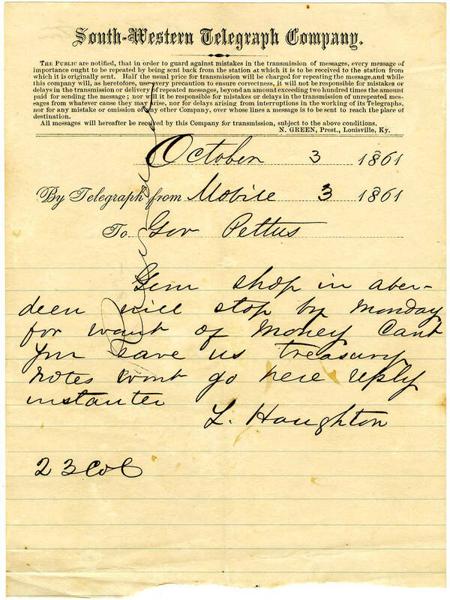 South-Western Telegraph Company.
THE PUBLIC are notified, that in order to guard against mistakes in the transmission of messages, every message of
importance ought to be repeated by being sent back from the station at which it is to be received to the station from
which it is originally sent. Half the usual price for transmission will be charged for repeating the message, and while
this company will, as heretofore, use every precaution to ensure correctness, it will not be responsible for mistakes or
delays in the transmission or delivery of repeated messages, beyond an amount exceeding two hundred times the amount
paid for sending the message; nor will it be responsible for mistakes or delays in the transmission of unrepeated mes-
sages from whatever cause they may arise, nor for delays arising from interruptions in the working of its Telegraphs,
nor for any mistake or omission of any other Company, over whose lines a message is to be sent to reach the place of
destination.
All messages will hereafter be received by this Company for transmission, subject to the above conditions.
N. GREEN, Prest., Louisville, Ky.
October 3 1861
By Telegraph from Mobile 3 1861
To Gov Pettus
shop in aber-
deen will stop by Monday
for want of Money Cant
you save us treasury
notes wont go here reply
instanter
L. Haughton
23 Col